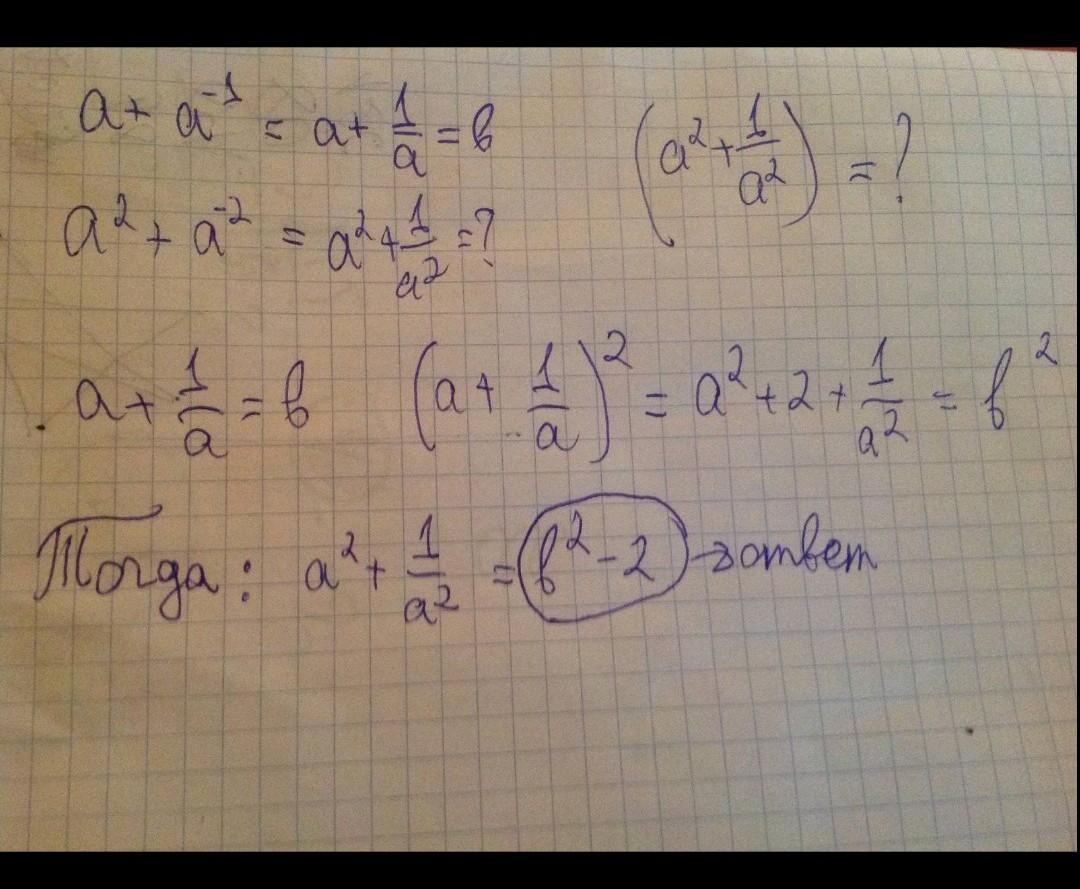 a + a⁻¹ = a + 1/a = в
(a² + 1/a²) = ?
a² + a⁻² = a² + 1/a² = ?
a + 1/a = в (a + 1/a)² = a² + 2 + 1/a² = в²
Тогда: a² + 1/a² = в² - 2 → ответ